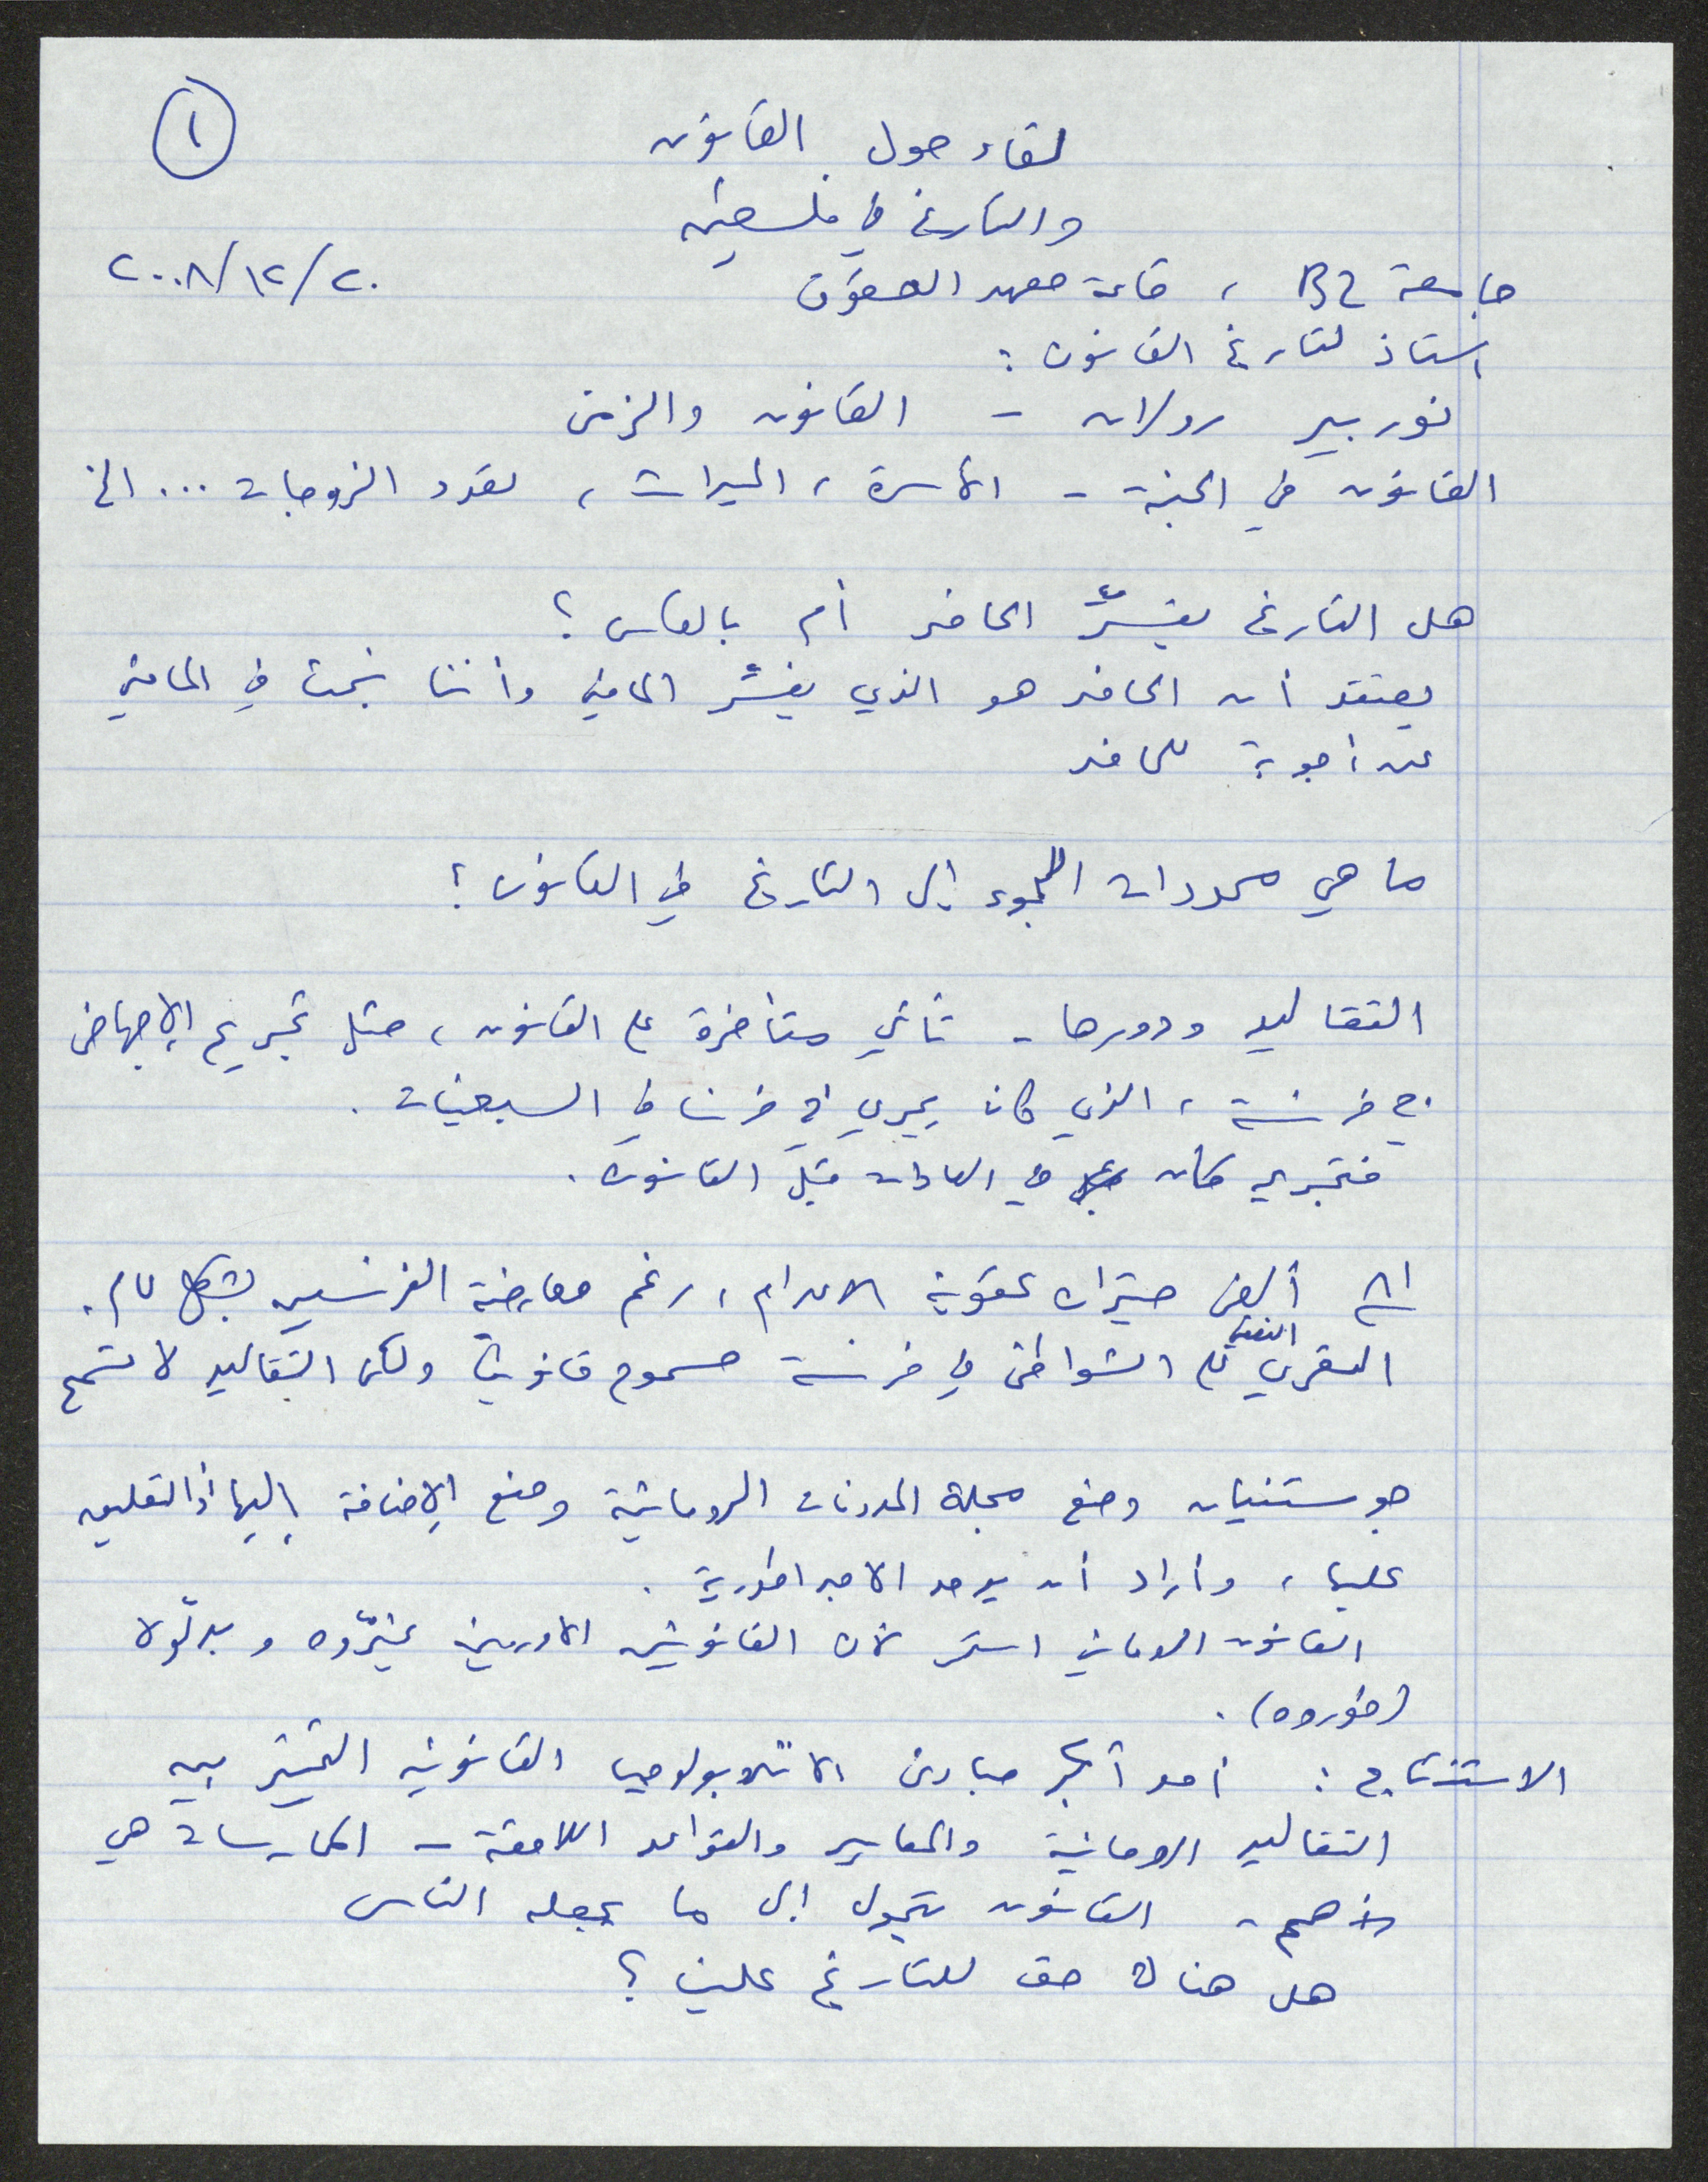 ١
لقاء حول القانون
والتاريخ في فلسطين
٢٠/١٢/٢٠٠٨
جامعة BZ ، قاعة معهد الحقوق
استاذ لتاريخ القانون :
نوربير رولان - القانون والزمن
القانون في الجنة - الأسرة ، الميراث ، تعدد الزوجات ... الخ
هل التاريخ يفسّر الحاضر أم بالعكس ؟
يعتقد أن الحاضر هو الذي يفسّر الماضي وأننا نبحث في الماضي
عن أجوبة للحاضر
ما هي محددات اللجوء إلى التاريخ في القانون ؟
التقاليد ودورها - تأتي متأخرة على القانون ، مثل تجريم الإجهاض
في فرنسة ، الذي كان يجري في فرنسا في السبعينات .
كان في العادات قبل القانون .
ألغى ميتران عقوبة الاعدام ، رغم معارضة الفرنسيين بشكل عام .
التعري النصفي على الشواطئ في فرنسة مسموح قانونياً ولكن التقاليد لا تسمح
جوستنيان وضع مجلة المدونات الرومانية ومنع الإضافة إليها أو التعليق
عليها ، وأراد أن يوحد الامبراطورية .
القانون الروماني استمر لأن القانونيين الاوربيين غيّروه وبدّلوه
(طوروه) .
الاستنتاج : أحد أكبر مبادئ الانثروبولوجيا القانونية التمييز بين
التقاليد الرومانية والمعايير والقواعد اللاحقة - الممارسات هي
الأهم - القانون يتحول إلى ما يجعله الناس
هل هناك حق للتاريخ علينا ؟